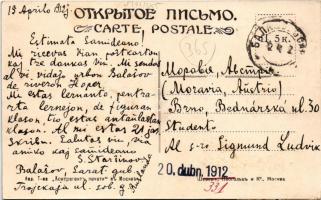 13 Aprilo 1912j
ОТКРЫТОЕ ПИСЬМО.
CARTE POSTALE
Estimata Samideano!
Mi ricevas Vian postkarton,
kaj tre dankas vin. Mi sendas
al vi vidaĵo urbon Balaŝov
de rivero Hoper.
Mi estas lernanto, pentr-
arta lernejon, de figuran
klason, tio estas antaŭlastan
klason. Al mi estas 21 jar.
Skribu. Salutas vin, via
amiko kaj samideano
S. Starĉinov
Balaŝov, Sarat. gub.
Trojckaja ul. sob. d.
Моравiя, Австрiя
(Moravia, Austrio)
Brno, Bednářská ul. 30
Student
Al s-ro Sigmund Ludvik
20. dubn. 1912